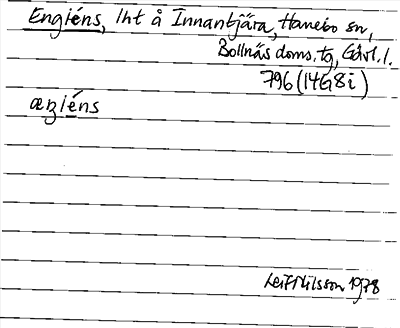 Engiéns, lht å Innantjära, Hanebo sn,
Bollnäs doms. tg, Gävl. l.
796 (14G8i)
æŋiéns
Leif Nilsson 1978